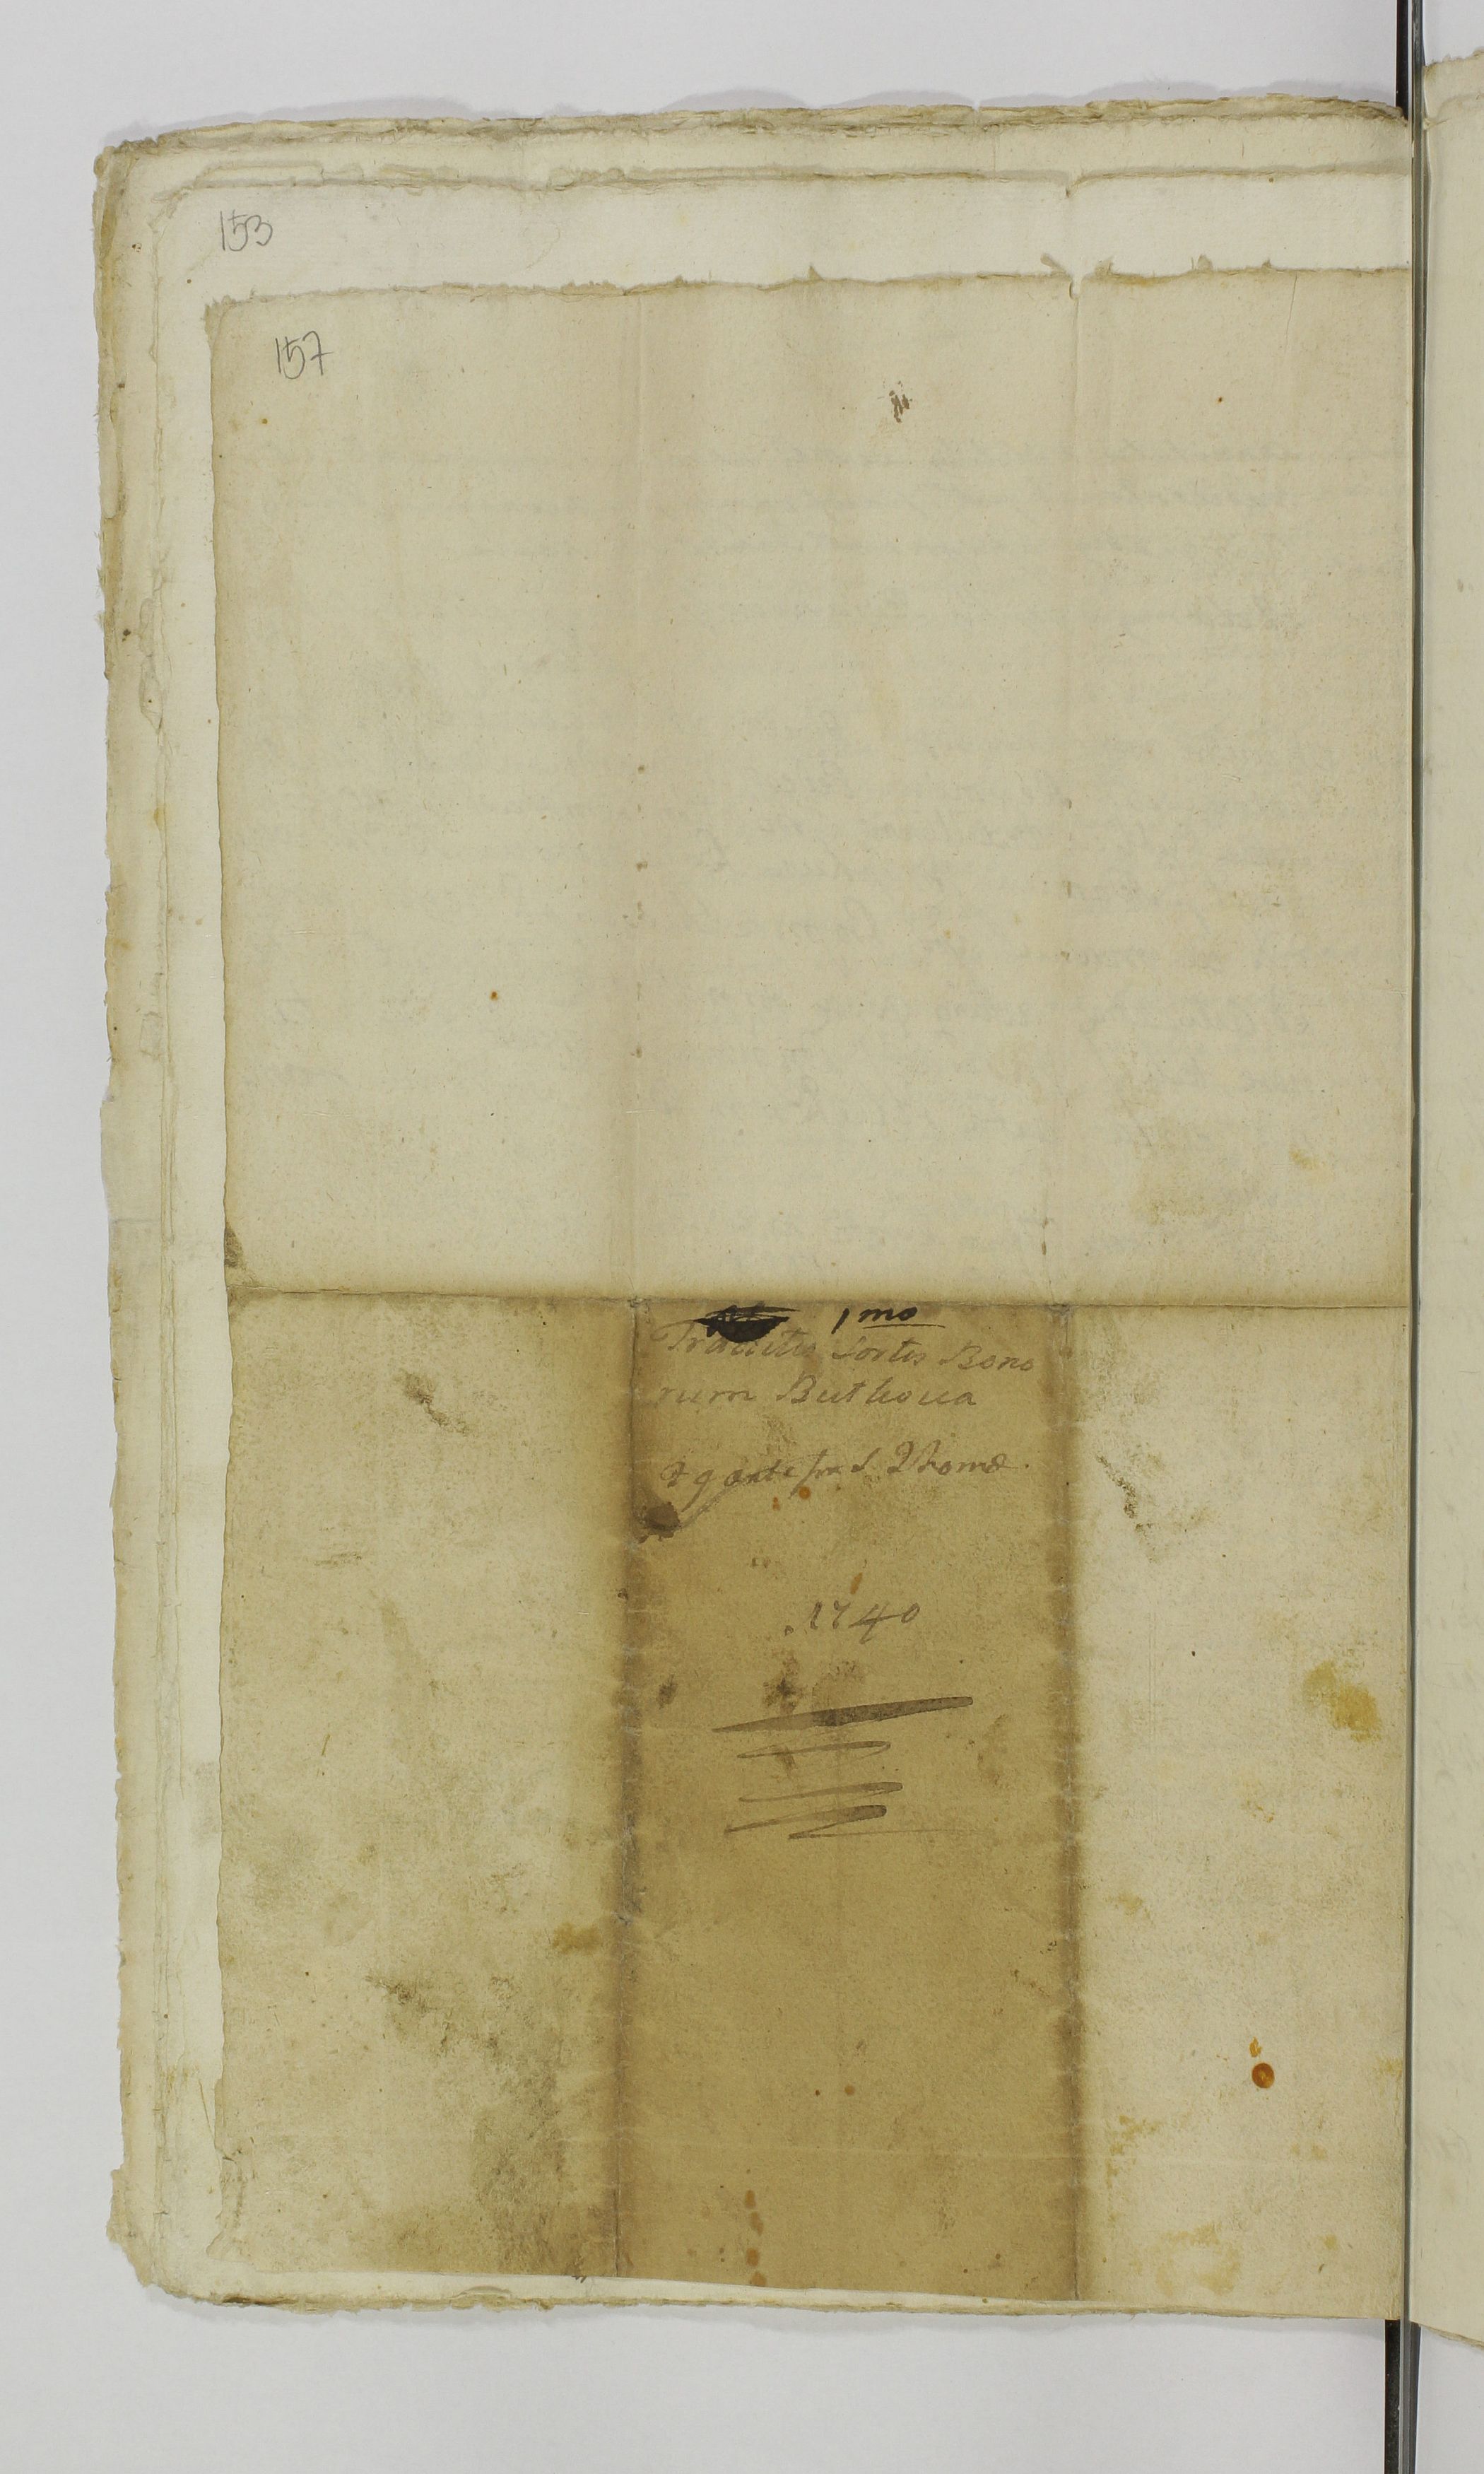 153
157
1mo
Traditio Sortis Bono
rum Buthova
ante S. Thomæ.
.1740